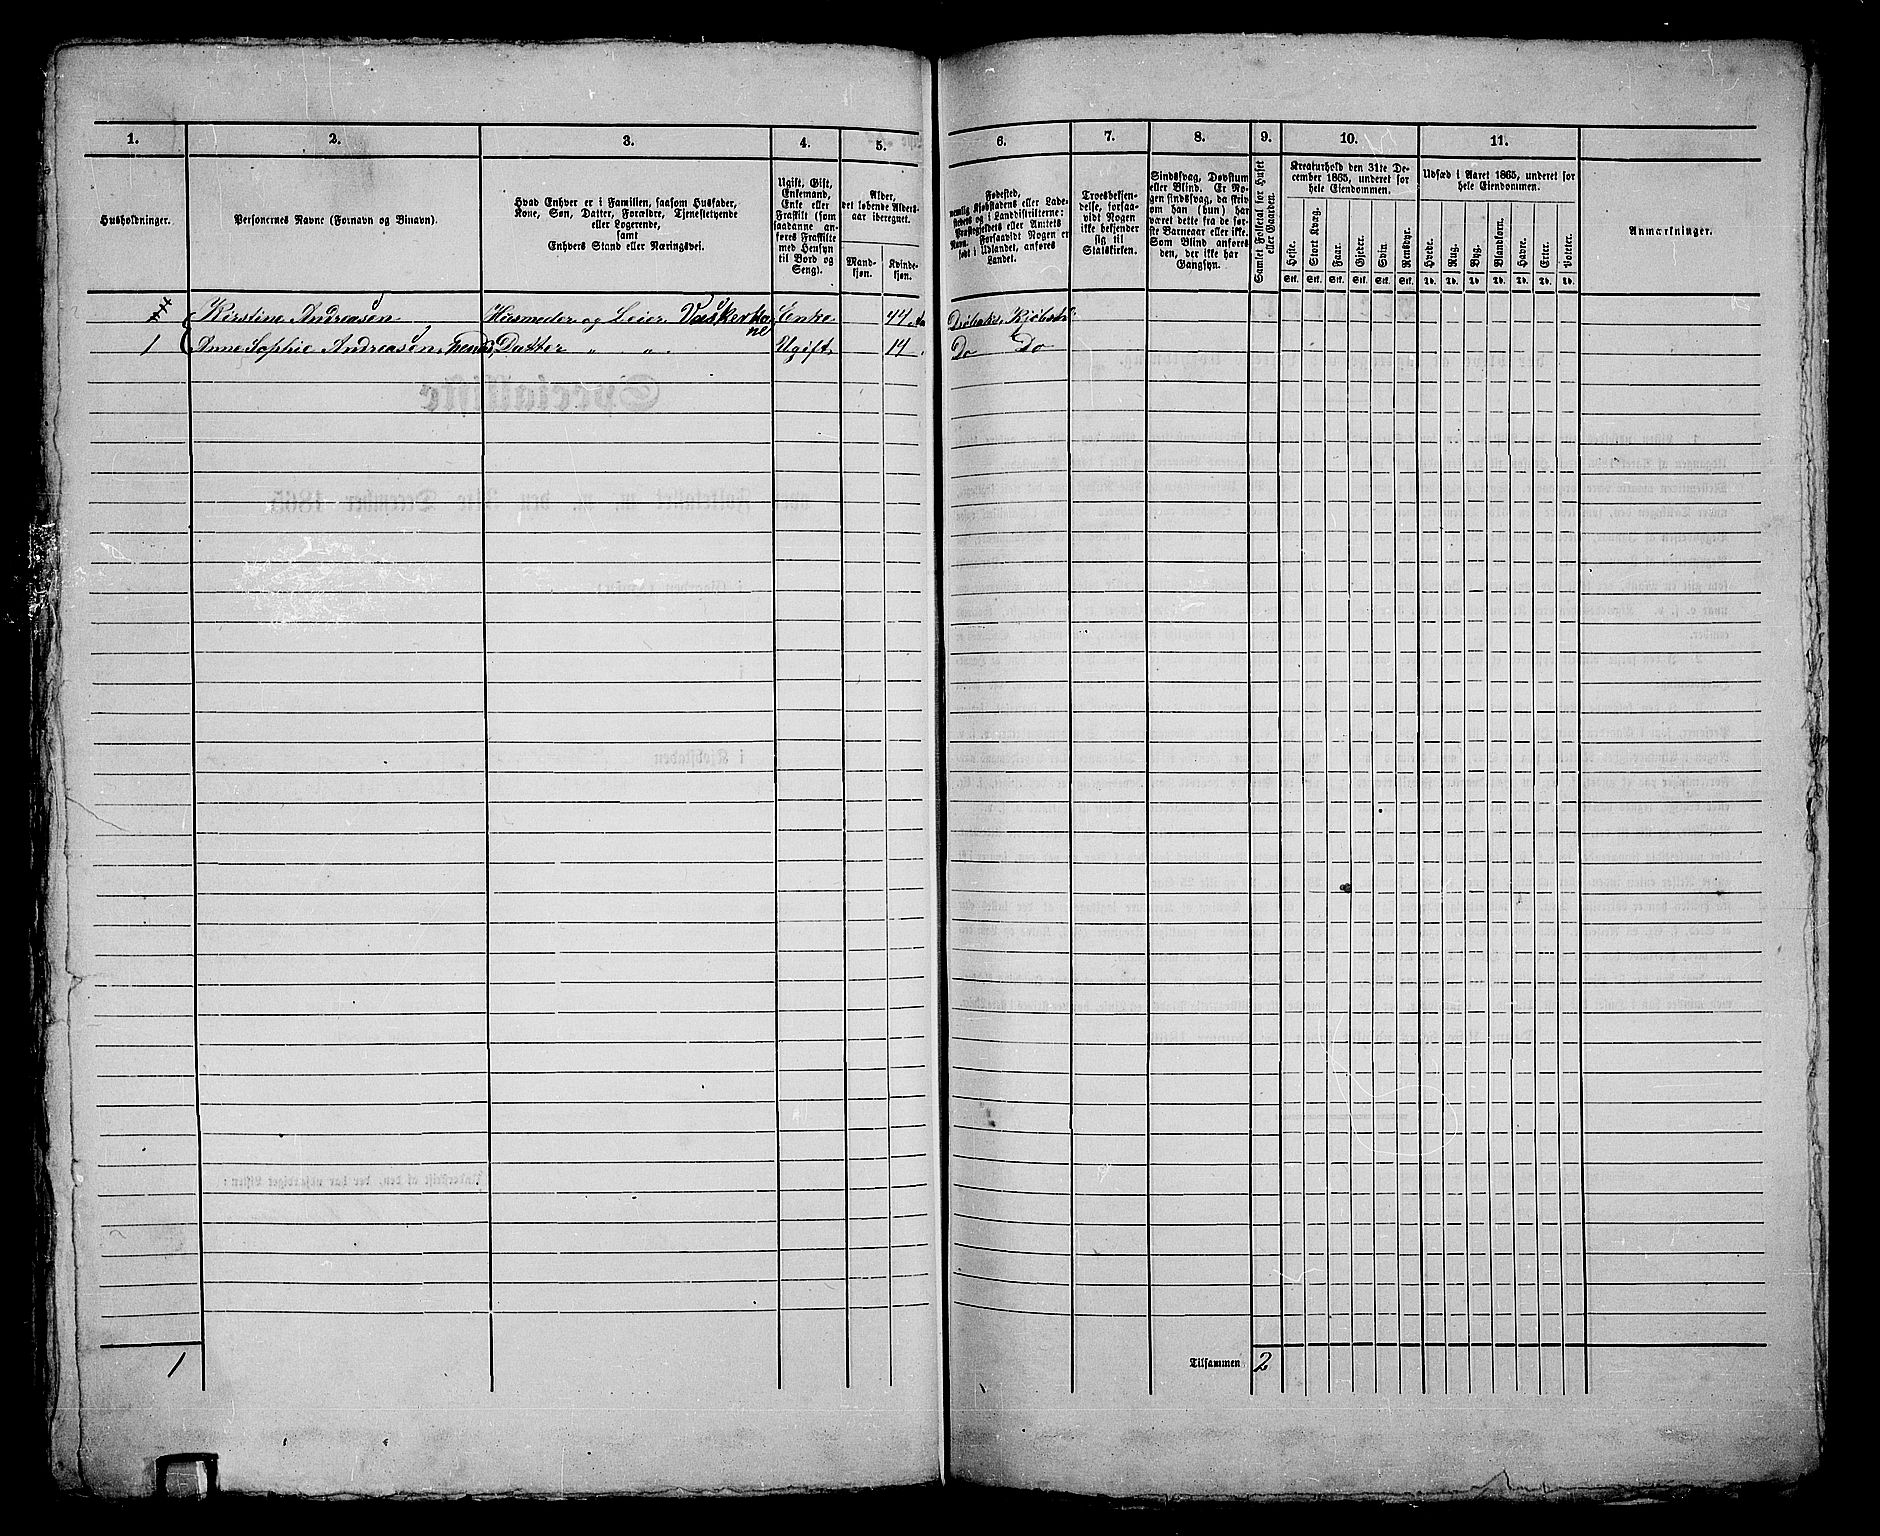 1. 2. 3. 4. 5. 6. 7. 8. 9. 10. 11.
Husholdninger.
Personernes Navne (Fornavn og Binavn).
Hvad Enhver er i Familien, saasom Husfader,
Kone, Søn, Datter, Forældre, Tjenestetyende
eller Logerende,
samt
Enhvers Stand eller Næringsvei.
Ugift, Gift,
Enkemand,
Enke eller
Fraskilt (som
saadanne an-
føres Fraskilte
med Hensyn
til Bord og
Seng).
Alder,
det løbende Alders-
aar iberegnet.
Mand-
kjøn.
Kvinde-
kjøn.
Fødested,
nemlig Kjøbstadens eller Lade-
stedets og i Landdistrikterne:
Præstegjeldets eller Amtets
Navn. Forsaavidt Nogen er
født i Udlandet, anføres
Landet.
Troesbekjen-
delse, forsaa-
vidt Nogen
ikke bekjender
sig til
Statskirken.
Sindssvag, Døvstum
eller Blind. Er No-
gen sindssvag, da skriv
om han (hun) har
været dette fra de før-
ste Barneaar eller ikke.
Som Blind anføres
den, der ikke har
Gangsyn.
Samlet Folketal for Huset
eller Gaarden.
Kreaturhold den 31te De-
cember 1865, underet for
hele Eiendommen.
Heste. Stort Kvæg. Faar. Gjeder. Svin. Rensdyr.
Stk. Stk. Stk. Stk. Stk. Stk.
Udsæd i Aaret 1865, underet for
hele Eiendommen.
Hvede. Rug. Byg. Blandkorn. Havre. Erter. Poteter.
Td. Td. Td. Td. Td. Td. Td.
Anmærkninger.
Kirstine Andreasen Husmoder og Leier Vaskerko Enke 44 Drøbaks Kjøbst
ne
1 Anne Sophie Andreasen, hends Datter " " Ugift 14 Do Do
1 Tilsammen 2